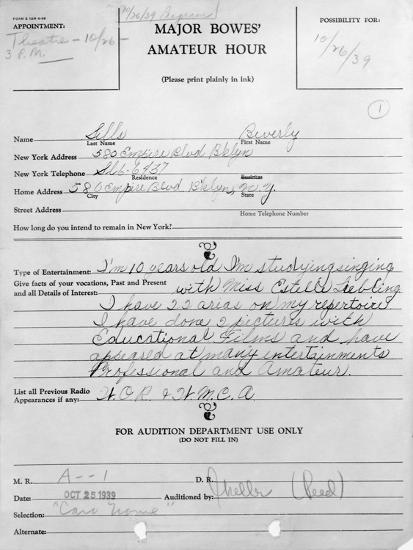 FORM 2 12M 6-38
10/26/39
APPOINTMENT:
Theatre - 10/26 -
3 P.M.
MAJOR BOWES'
AMATEUR HOUR
(Please print plainly in ink)
POSSIBILITY FOR:
10/26/39
1
Name Sills Beverly
Last Name First Name
New York Address 580 Empire Blvd Bklyn
New York Telephone Sl6-6437
Residence Business
Home Address 580 Empire Blvd Bklyn, N.Y.
City State
Street Address
Home Telephone Number
How long do you intend to remain in New York?
Type of Entertainment: I'm 10 years old I'm studying singing
Give facts of your vocations, Past and Present with Miss Estelle Liebling
and all Details of Interest: I have 22 areas on my repertoire
I have done 2 pictures with
Educational Films and have
appeared at many entertainments
Professional and Amateur.
List all Previous Radio
Appearances if any: W.O.R & W.M.C.A
FOR AUDITION DEPARTMENT USE ONLY
(DO NOT FILL IN)
M. R. A--1 D. R.
Date: OCT 25 1939 Auditioned by: (Reed)
Selection: "Caro Nome"
Alternate: